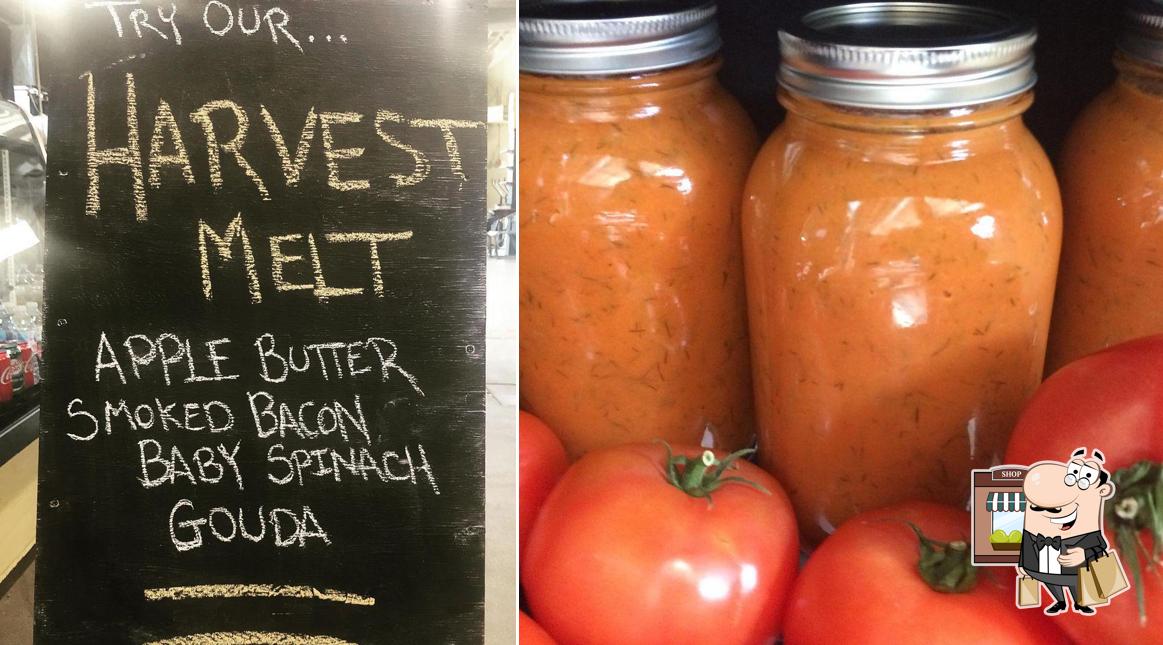 TRY OUR...
HARVEST
MELT
APPLE BUTTER
SMOKED BACON
BABY SPINACH
GOUDA
SHOP